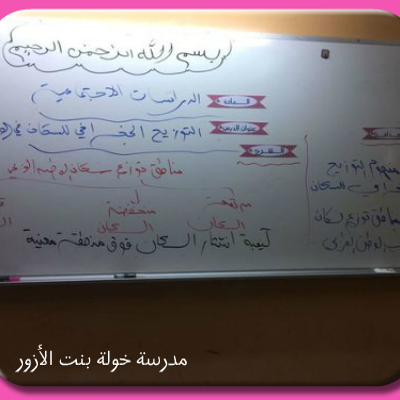 بسم الله الرحمن الرحيم
المادة الدراسات الاجتماعية
عنوان الدرس التوزيع الجغرافي للسكان في
مناطق توزيع سكان الوطن
مرتفعة
السكان
منخفضة
السكان
كيفية انتشار السكان فوق منطقة معينة
مفهوم التوزيع
الجغرافي للسكان
مناطق توزيع سكان
الوطن العربي
مدرسة خولة بنت الأزور